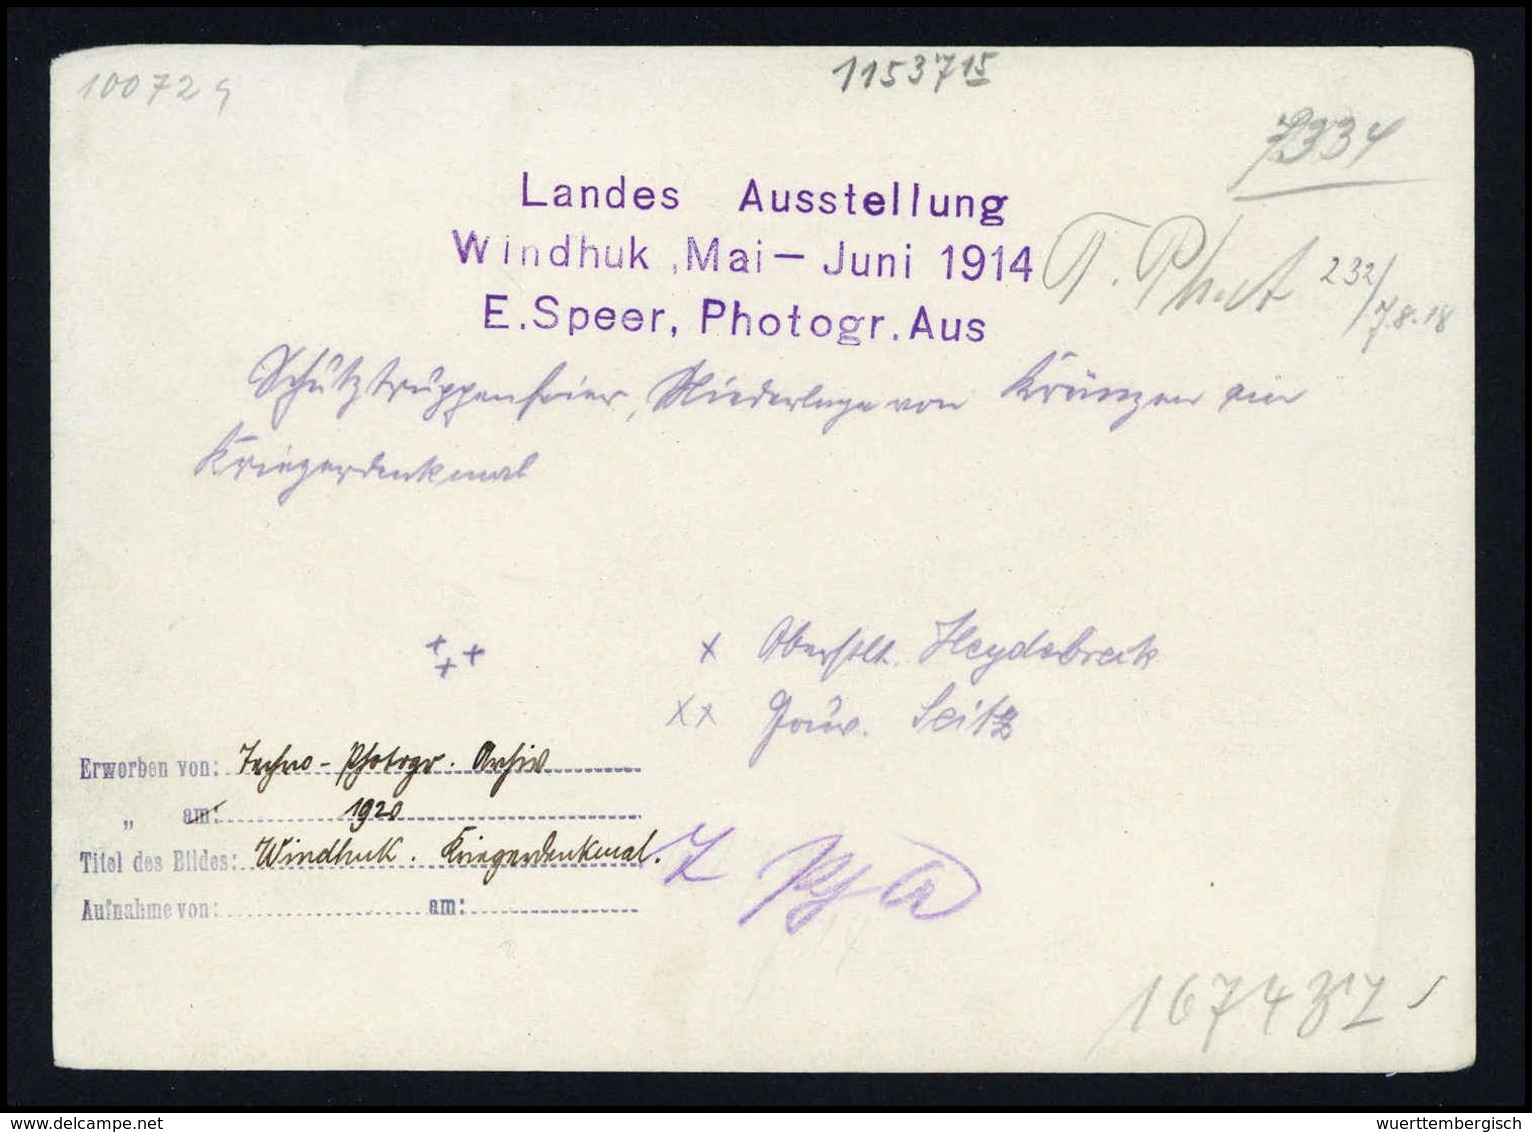 100729
1153715
7334
Landes Ausstellung
Windhuk, Mai — Juni 1914
E. Speer, Photogr. Aus
T. Phot 232/7.8.18
Schutztruppenfeier, Niederlage von Kränzen am
Kriegerdenkmal
+ + +
x Oberstlt. Heydebreck
xx Gouv. Seitz
Erworben von: Techno-Photogr. Archiv
„ am: 1920
Titel des Bildes: Windhuk. Kriegerdenkmal.
Aufnahme von: am:
wuerttembergisch
www.delcampe.net